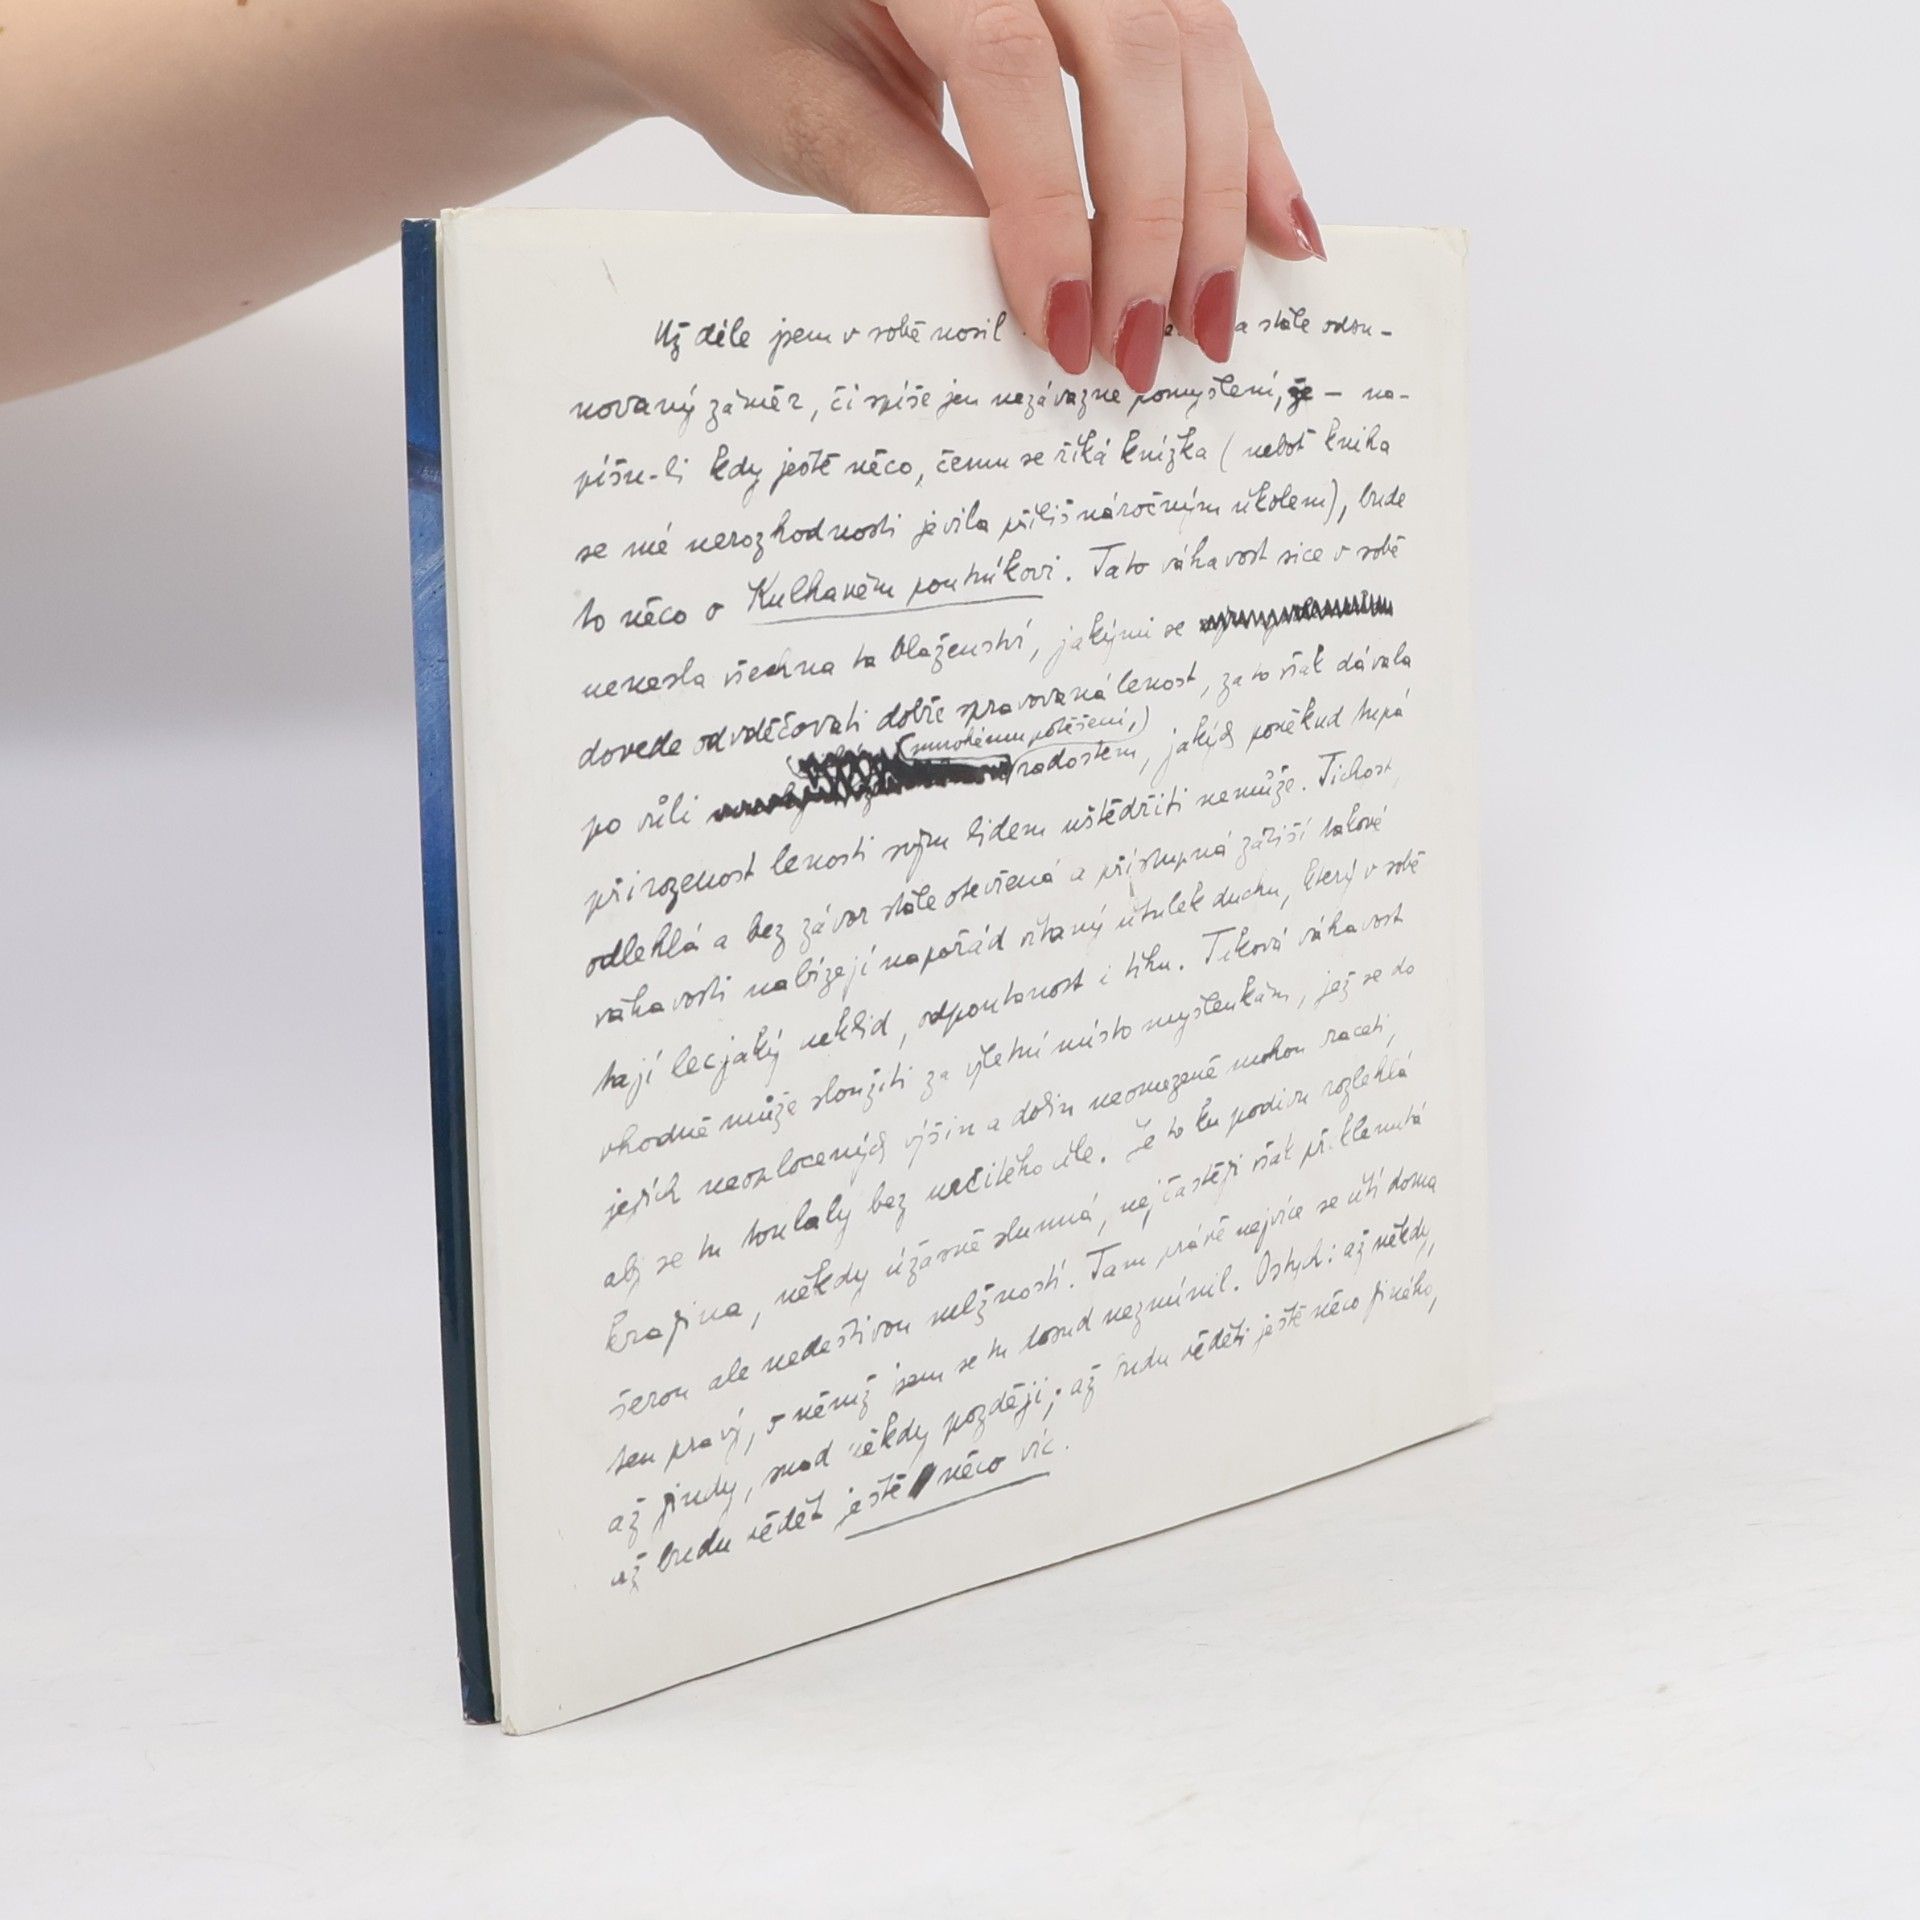 Už déle jsem v sobě nosil a stále odsu-
novaný záměr, či spíše jen nezávazné pomyšlení, že – na-
píšu-li kdy ještě něco, čemu se říká knížka (neboť kniha
se mé nerozhodnosti jevila příliš náročným úkolem), bude
to něco o Kulhavém poutníkovi. Tato váhavost sice v sobě
nenesla všechna ta blaženství, jakými se
dovede odvděčovati dobře spravovaná lenost, za to však dávala
(mnohému potěšení,)
po vůli radostem, jakých poněkud tupá
přirozenost lenosti svým lidem uštědřiti nemůže. Tichost,
odlehlá a bez závor stále otevřená a přístupná zátiší takové
váhavosti nabízejí napořád vítaný útulek duchu, který v sobě
tají lecjaký neklid, odpoutanost i tíhu. Taková váhavost
vhodně může sloužiti za výletní místo myšlenkám, jež se do
jejích neoplocených výšin a dolin neomezeně mohou raceti,
aby se tu toulaly bez určitého cíle. Je to tu podivu rozlehlá
krajina, někdy úžasně slunná, nejčastěji však přiklenutá
šerou ale nedeštivou mlžností. Tam právě nejvíce se cítí doma
ten pravý, o němž jsem se tu dosud nezmínil. Ostych: až někdy,
až jindy, snad někdy později; až budu věděti ještě něco jiného,
až budu vědět ještě něco víc.